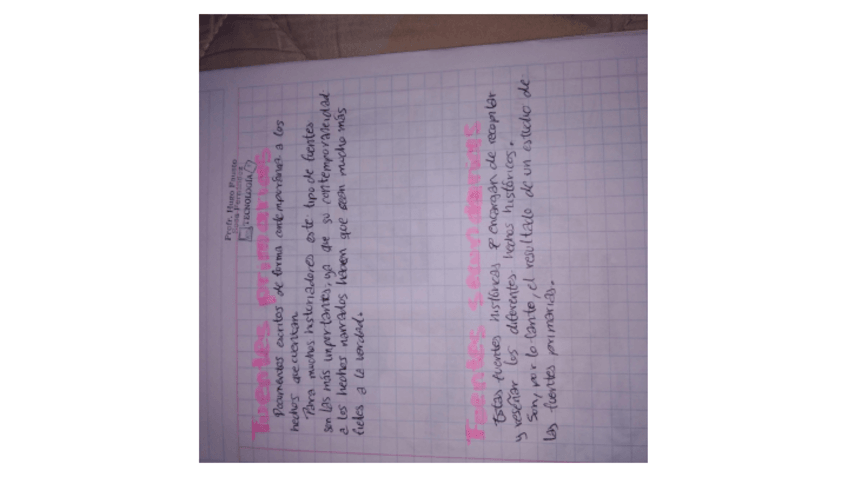 Profr. Hugo Fausto
TECNOLOGÍA
Fuentes primarias
Documentos escritos de forma contemporánea a los
hechos que cuentan.
Para muchos historiadores este tipo de fuentes
son las más importantes, ya que su contemporaneidad
a los hechos narrados hacen que sean mucho más
fieles a la verdad.
Fuentes secundarias
Estas fuentes históricas se encargan de recopilar
y reseñar los diferentes hechos históricos.
Son, por lo tanto, el resultado de un estudio de
las fuentes primarias.